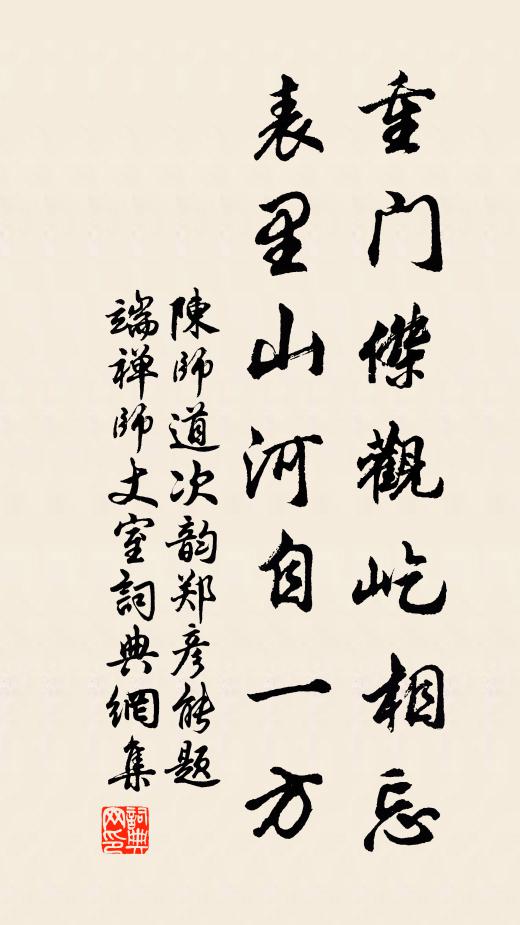 重門傑觀屹相忘
表里山河自一方
陳師道次韵郑彦能題
端禅師丈室詞典網集
詞典网印